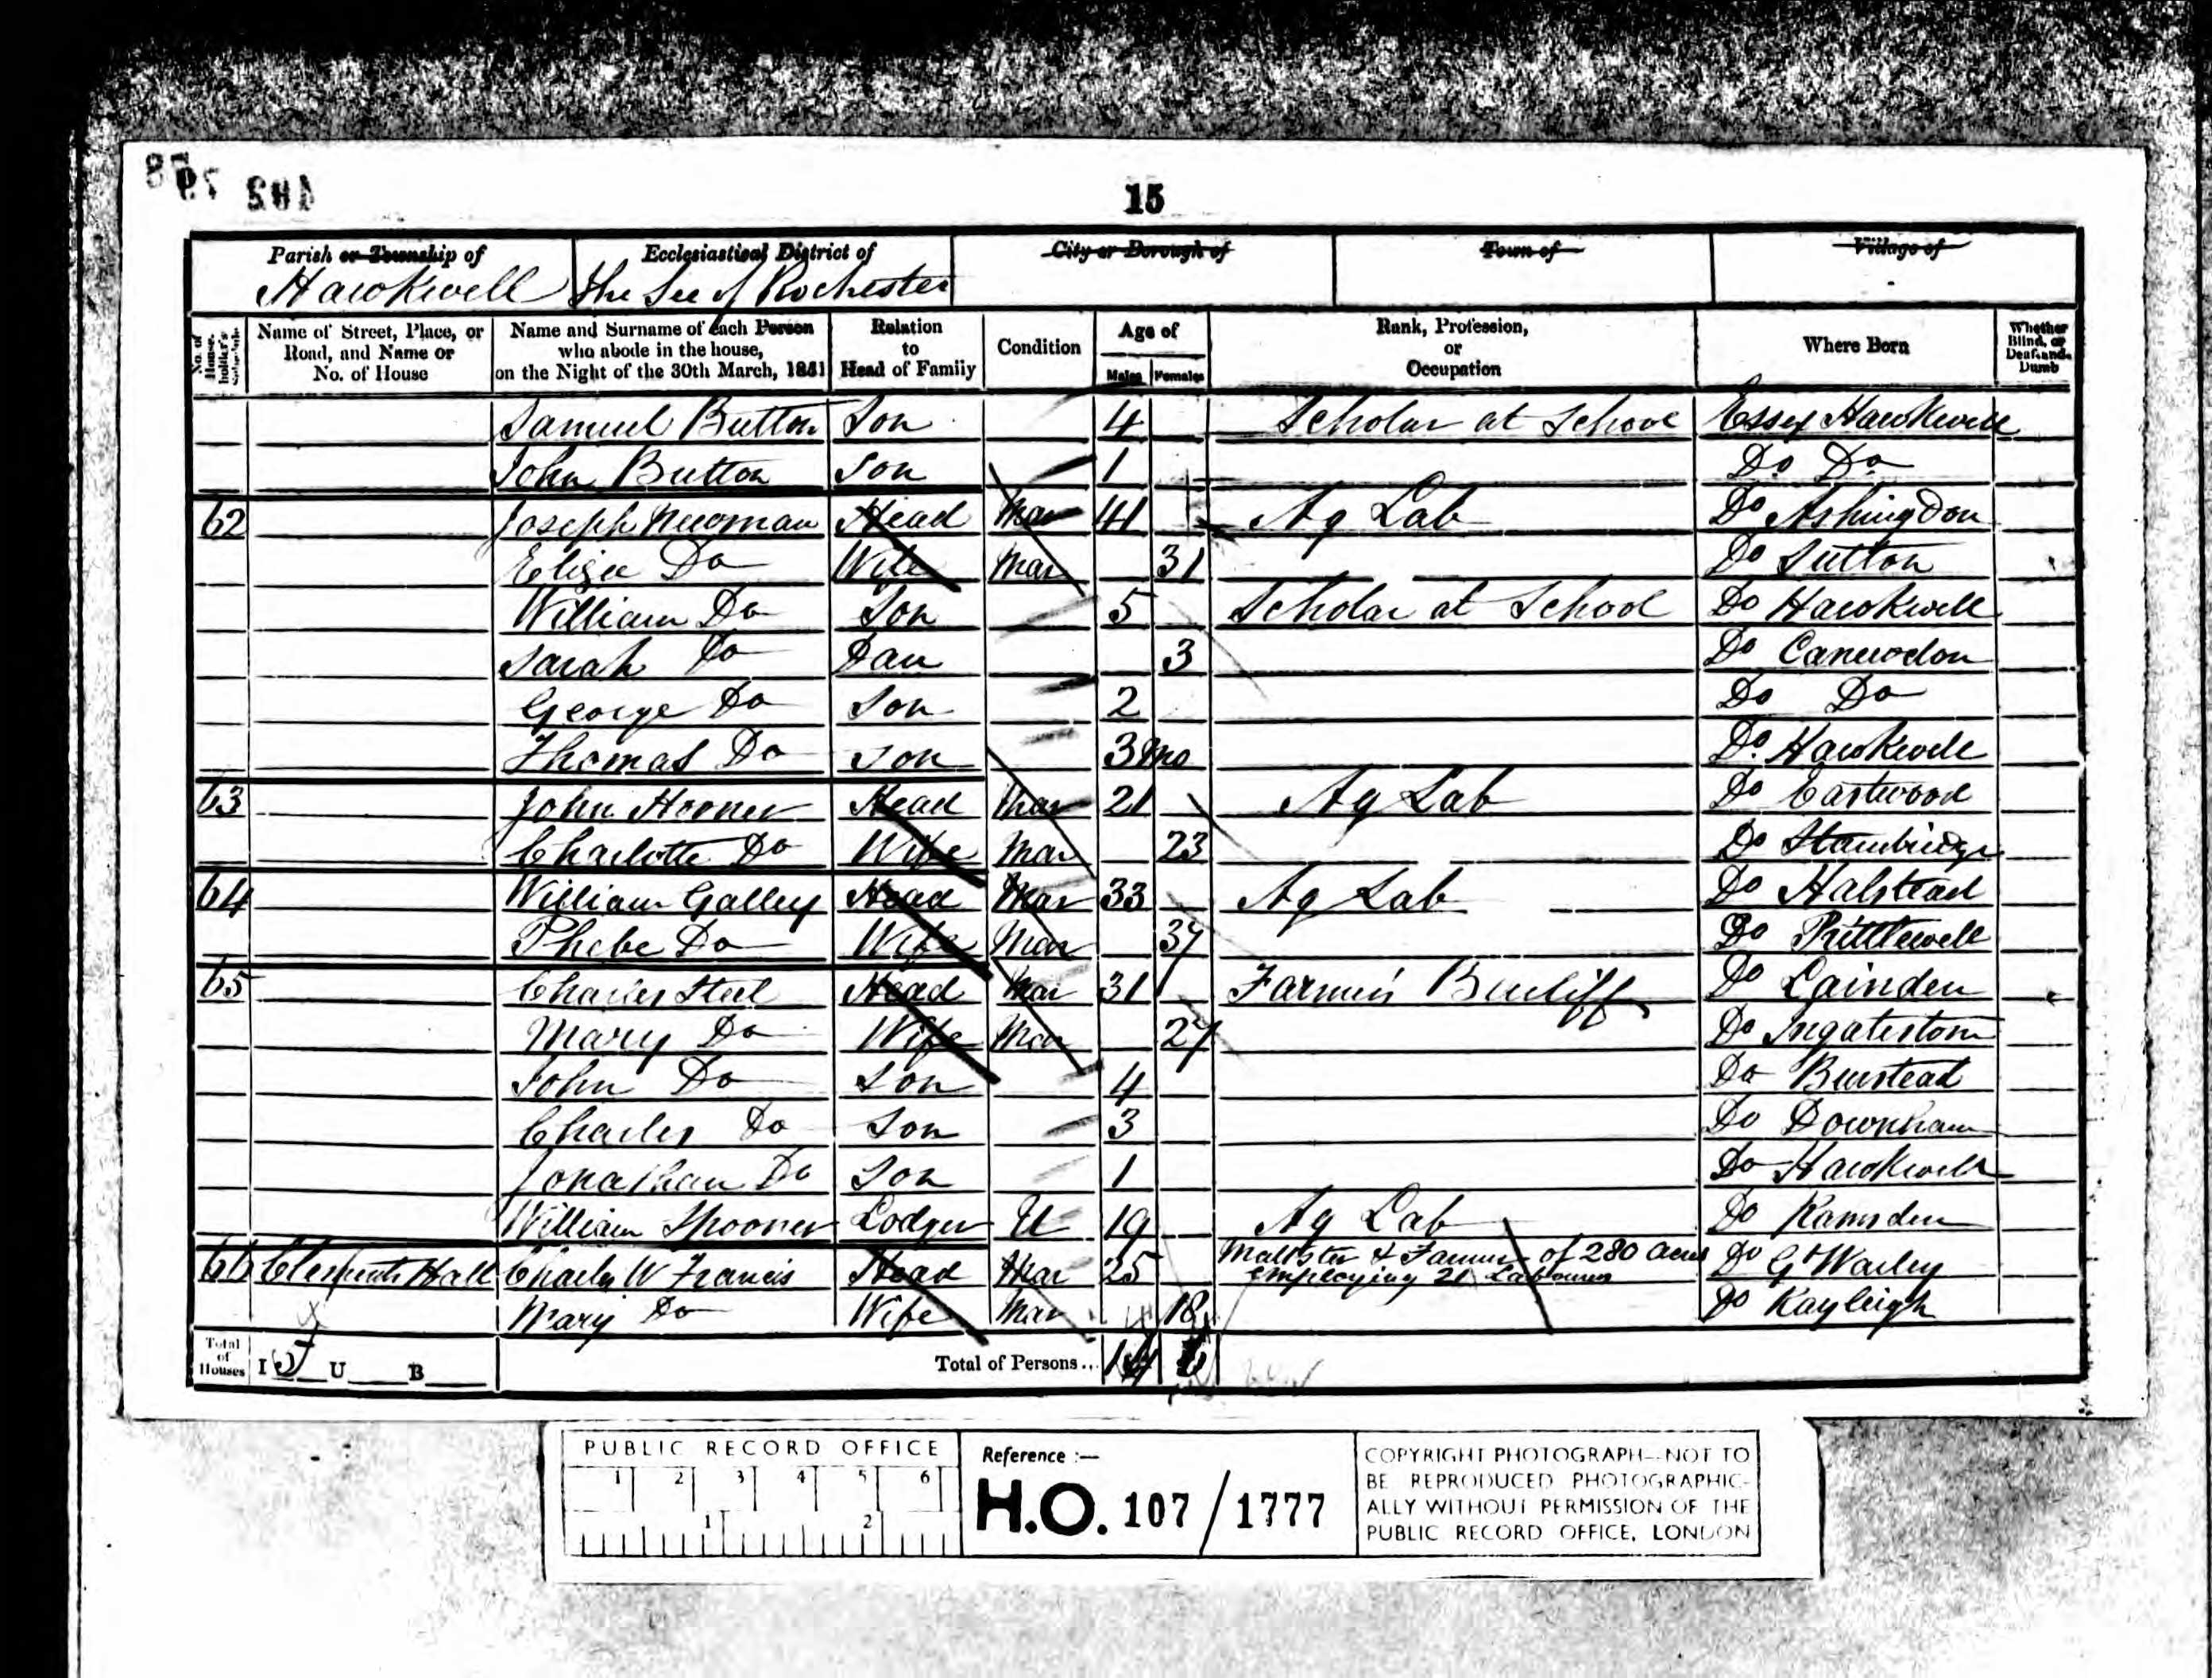 15
Parish or Township of
Hawkwell
Ecclesiastical District of
The See of Rochester
City or Borough of
Town of
Village of
No. of House-holder's Schedule
Name of Street, Place, or Road, and Name or No. of House
Name and Surname of each Person who abode in the house, on the Night of the 30th March, 1851
Relation to Head of Family
Condition
Age of
Males
Females
Rank, Profession, or Occupation
Where Born
Whether Blind, or Deaf-and-Dumb
Samuel Button Son 4 Scholar at School Essex Hawkwell
John Button Son 1 Do Do
62 Joseph Newman Head Mar 41 Ag Lab Do Ashingdon
Eliza Do Wife Mar 31 Do Sutton
William Do Son 5 Scholar at School Do Hawkwell
Sarah Do Dau 3 Do Canewdon
George Do Son 2 Do Do
Thomas Do Son 3 Mo Do Hawkwell
63 John Horner Head Mar 21 Ag Lab Do Eastwood
Charlotte Do Wife Mar 23 Do Stambridge
64 William Galley Head Mar 33 Ag Lab Do Halstead
Phebe Do Wife Mar 37 Do Prittlewell
65 Charles Steel Head Mar 31 Farmer's Bailiff Do Lainden
Mary Do Wife Mar 27 Do Ingatestone
John Do Son 4 Do Burstead
Charles Do Son 3 Do Downham
Jonathan Do Son 1 Do Hawkwell
William Spooner Lodger U 19 Ag Lab Do Ramsden
66 Clements Hall Charles W Francis Head Mar 25 Maltster & Farmer of 280 acres employing 21 Labourers Do Gt Warley
Mary Do Wife Mar 18 Do Rayleigh
Total of Houses I 5 U B
Total of Persons... 14
PUBLIC RECORD OFFICE
1 2 3 4 5 6
1 2
Reference :—
H.O. 107/1777
COPYRIGHT PHOTOGRAPH—NOT TO
BE REPRODUCED PHOTOGRAPHIC-
ALLY WITHOUT PERMISSION OF THE
PUBLIC RECORD OFFICE, LONDON